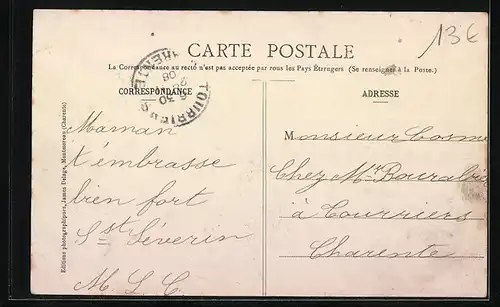 13€
CARTE POSTALE
La Correspondance au recto n'est pas acceptée par tous les Pays Étrangers (Se renseigner à la Poste.)
CORRESPONDANCE
ADRESSE
TOURRIERS
CHARENTE
6 30
08
Maman
t'embrasse
bien fort
St Séverin
M. L. C.
Monsieur Cosme
Chez Mr
à Tourriers
Charente
Editions photographiques, James Delage, Montmoreau (Charente)